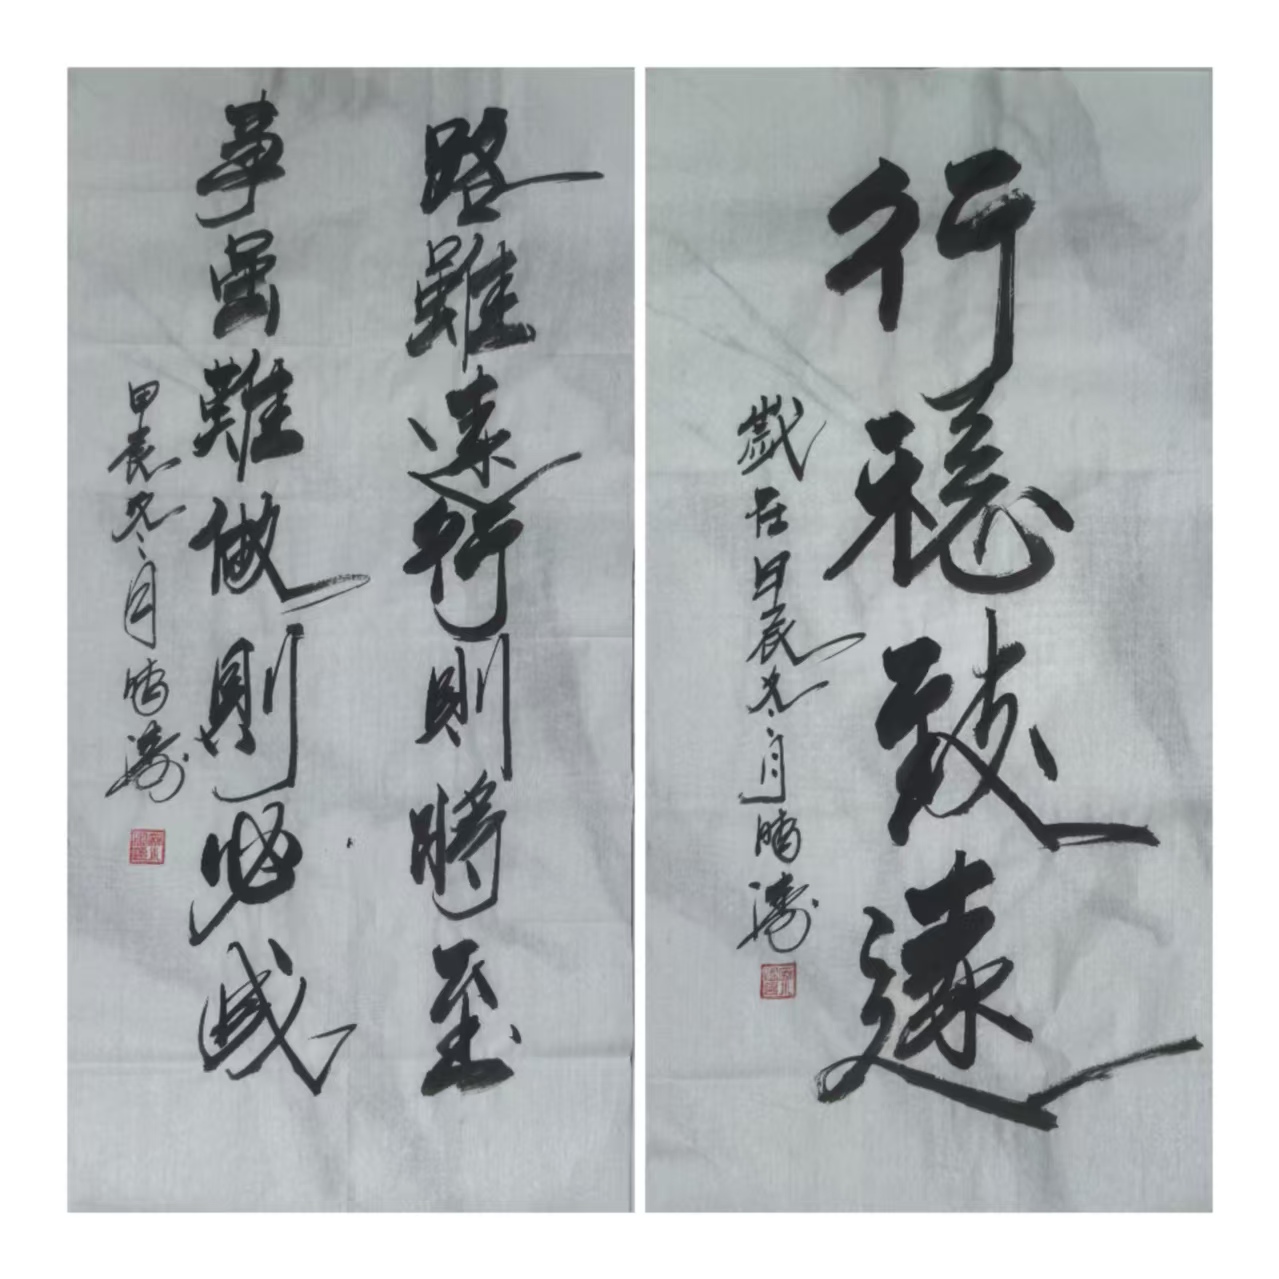 路雖遠行則將至
事虽難做則必成
甲辰冬月
行稳致遠
歲在甲辰冬月